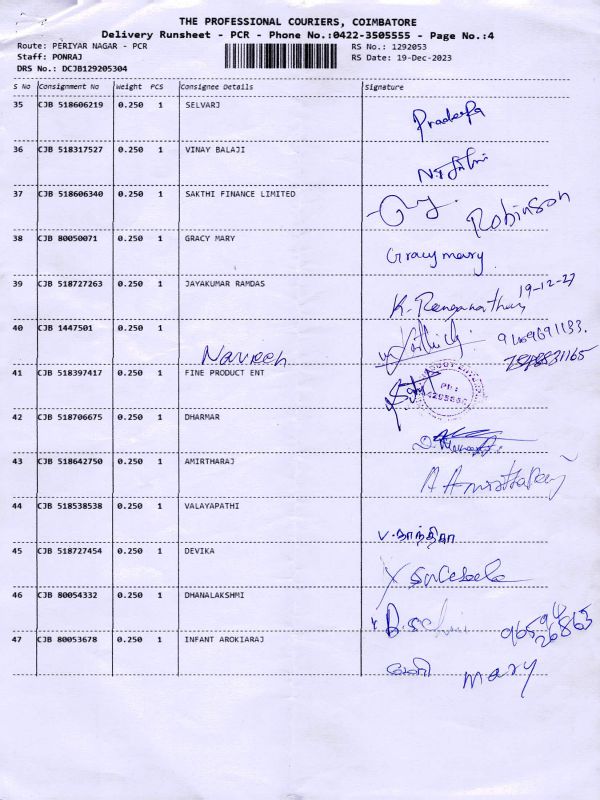 THE PROFESSIONAL COURIERS, COIMBATORE
Delivery Runsheet - PCR - Phone No.:0422-3505555 - Page No.:4
Route: PERIYAR NAGAR - PCR RS No.: 1292053
Staff: PONRAJ RS Date: 19-Dec-2023
DRS No.: DCJB129205304
S No Consignment No Weight PCS Consignee Details Signature
35 CJB 518606219 0.250 1 SELVARJ
Pradeepa
36 CJB 518317527 0.250 1 VINAY BALAJI
37 CJB 518606340 0.250 1 SAKTHI FINANCE LIMITED
Robinson
38 CJB 80050071 0.250 1 GRACY MARY
Gracy mary
39 CJB 518727263 0.250 1 JAYAKUMAR RAMDAS
K. Renganathan 19-12-27
40 CJB 1447501 0.250 1
Naveen
41 CJB 518397417 0.250 1 FINE PRODUCT ENT
42 CJB 518706675 0.250 1 DHARMAR
43 CJB 518642750 0.250 1 AMIRTHARAJ
A Amirtharaj
44 CJB 518538538 0.250 1 VALAYAPATHI
45 CJB 518727454 0.250 1 DEVIKA
46 CJB 80054332 0.250 1 DHANALAKSHMI
47 CJB 80053678 0.250 1 INFANT AROKIARAJ
mary